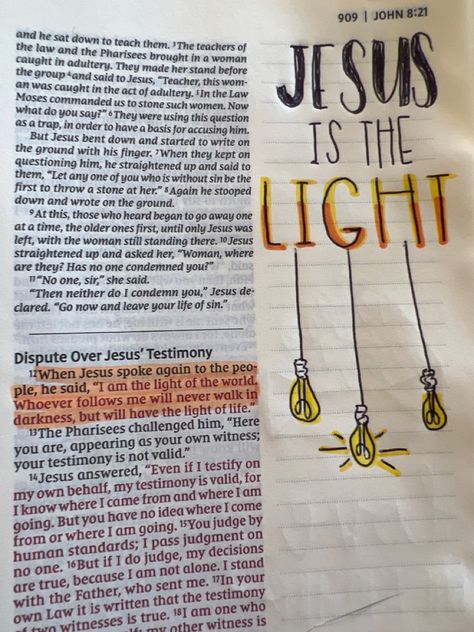 909 | JOHN 8:21
and he sat down to teach them. 3The teachers of
the law and the Pharisees brought in a woman
caught in adultery. They made her stand before
the group 4and said to Jesus, “Teacher, this wom-
an was caught in the act of adultery. 5In the Law
Moses commanded us to stone such women. Now
what do you say?” 6They were using this question
as a trap, in order to have a basis for accusing him.
But Jesus bent down and started to write on
the ground with his finger. 7When they kept on
questioning him, he straightened up and said to
them, “Let any one of you who is without sin be the
first to throw a stone at her.” 8Again he stooped
down and wrote on the ground.
9At this, those who heard began to go away one
at a time, the older ones first, until only Jesus was
left, with the woman still standing there. 10Jesus
straightened up and asked her, “Woman, where
are they? Has no one condemned you?”
11“No one, sir,” she said.
“Then neither do I condemn you,” Jesus de-
clared. “Go now and leave your life of sin.”
Dispute Over Jesus’ Testimony
12When Jesus spoke again to the peo-
ple, he said, “I am the light of the world.
Whoever follows me will never walk in
darkness, but will have the light of life.”
13The Pharisees challenged him, “Here
you are, appearing as your own witness;
your testimony is not valid.”
14Jesus answered, “Even if I testify on
my own behalf, my testimony is valid, for
I know where I came from and where I am
going. But you have no idea where I come
from or where I am going. 15You judge by
human standards; I pass judgment on
no one. 16But if I do judge, my decisions
are true, because I am not alone. I stand
with the Father, who sent me. 17In your
own Law it is written that the testimony
of two witnesses is true. 18I am one who
my other witness is
JESUS
IS THE
LIGHT